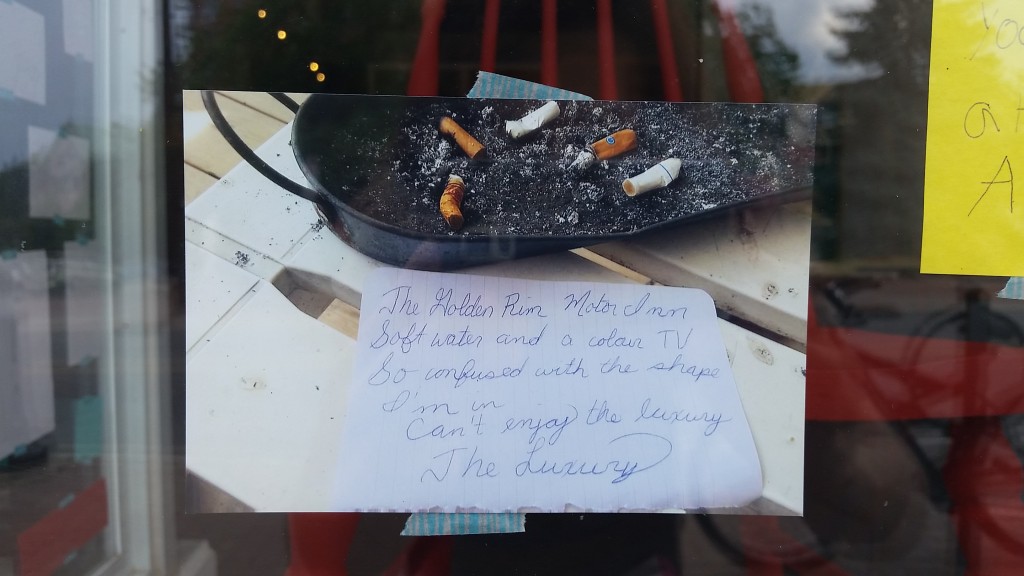 The Golden Rim Motor Inn
Soft water and a colour TV
So confused with the shape
I'm in
can't enjoy the luxury
The Luxury
A